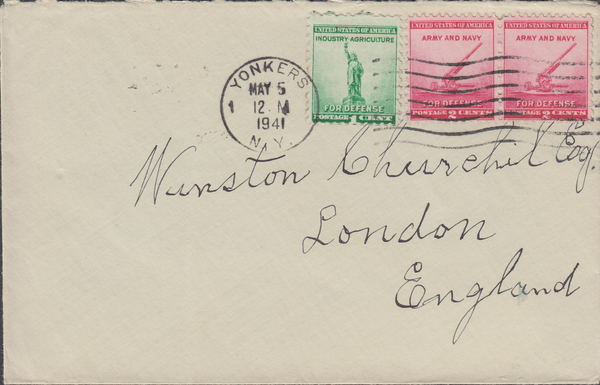 UNITED STATES OF AMERICA
INDUSTRY·AGRICULTURE
FOR DEFENSE
POSTAGE 1 CENT
UNITED STATES OF AMERICA
ARMY AND NAVY
FOR DEFENSE
POSTAGE 2 CENTS
UNITED STATES OF AMERICA
ARMY AND NAVY
FOR DEFENSE
POSTAGE 2 CENTS
YONKERS
1
MAY 5
12 M
1941
N.Y.
Winston Churchil Esq.
London
England